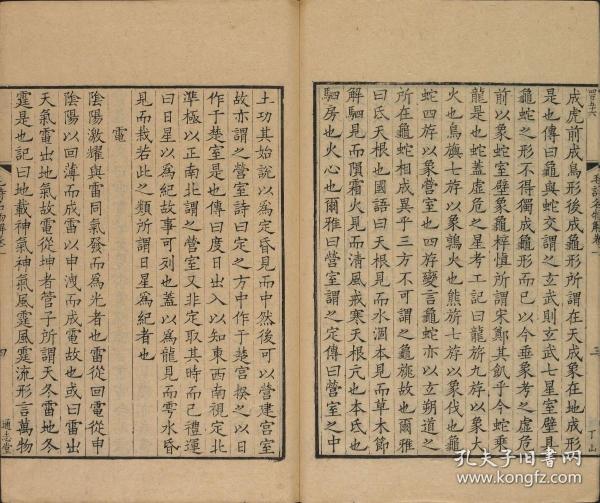 四百五十六
成虎前成鳥形後成龜形所謂在天成象在地成形
是也傳曰龜與蛇交謂之玄武則玄武七星室壁具
龜蛇之形不得獨成龜形而已以今垂象考之虛危
前以象蛇室壁象龜梓慎所謂宋鄭其飢乎今蛇乘
龍是也蛇蓋虛危之星考工記曰龍旂九斿以象大
火也鳥旟七斿以象鶉火也熊旂六斿以象伐也龜
蛇四斿以象營室也四斿變言龜蛇亦以玄朔道之
所在龜蛇相成異乎三方不可謂之龜旐故也爾雅
曰氐天根也國語曰天根見而水涸本見而草木節
解駟見而隕霜火見而清風戒寒天根亢也本氐也
駟房也火心也爾雅曰營室謂之定傳曰營室之中
毛詩名物解卷一
三
通志堂
土功其始說以為定昏見而中然後可以營建宮室
故亦謂之營室詩曰定之方中作于楚宮揆之以日
作于楚室是也傳曰度日出入以知東西南視定北
準極以正南北謂之營室又非定取其時而已禮運
曰日星以為紀故事可列也蓋以為龍見而雩水昏
見而栽若此之類所謂日星為紀者也
電
陰陽激耀與雷同氣發而為光者也雷從回電從申
陰陽以回薄而成雷以申洩而成電故也或曰雷出
天氣電出地氣故電從坤者管子所謂天冬雷地冬
霆是也記曰地載神氣神氣風霆風霆流形言萬物
四
孔夫子旧书网
WWW.KONGFZ.COM